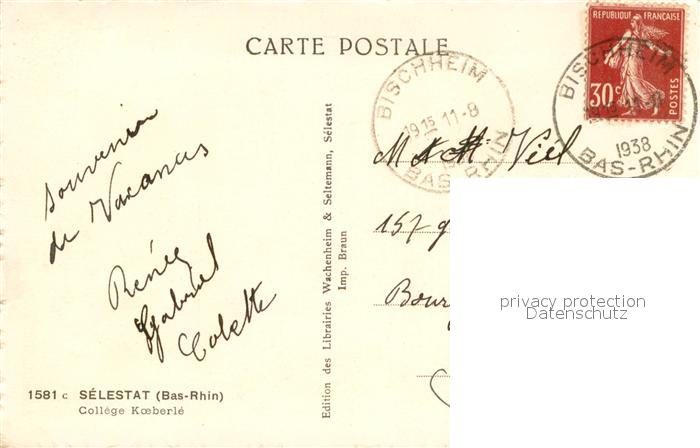 CARTE POSTALE
REPUBLIQUE FRANÇAISE
30c
POSTES
BISCHHEIM
19 15 11-8
BAS-RHIN
BISCHHEIM
1938
BAS-RHIN
souvenir
de Vacances
Renée
Gabriel
Colette
M et Mme Viel
157
Bour
Edition des Librairies Wachenheim & Seltemann, Sélestat
Imp. Braun
1581 c SÉLESTAT (Bas-Rhin)
Collège Kœberlé
privacy protection
Datenschutz